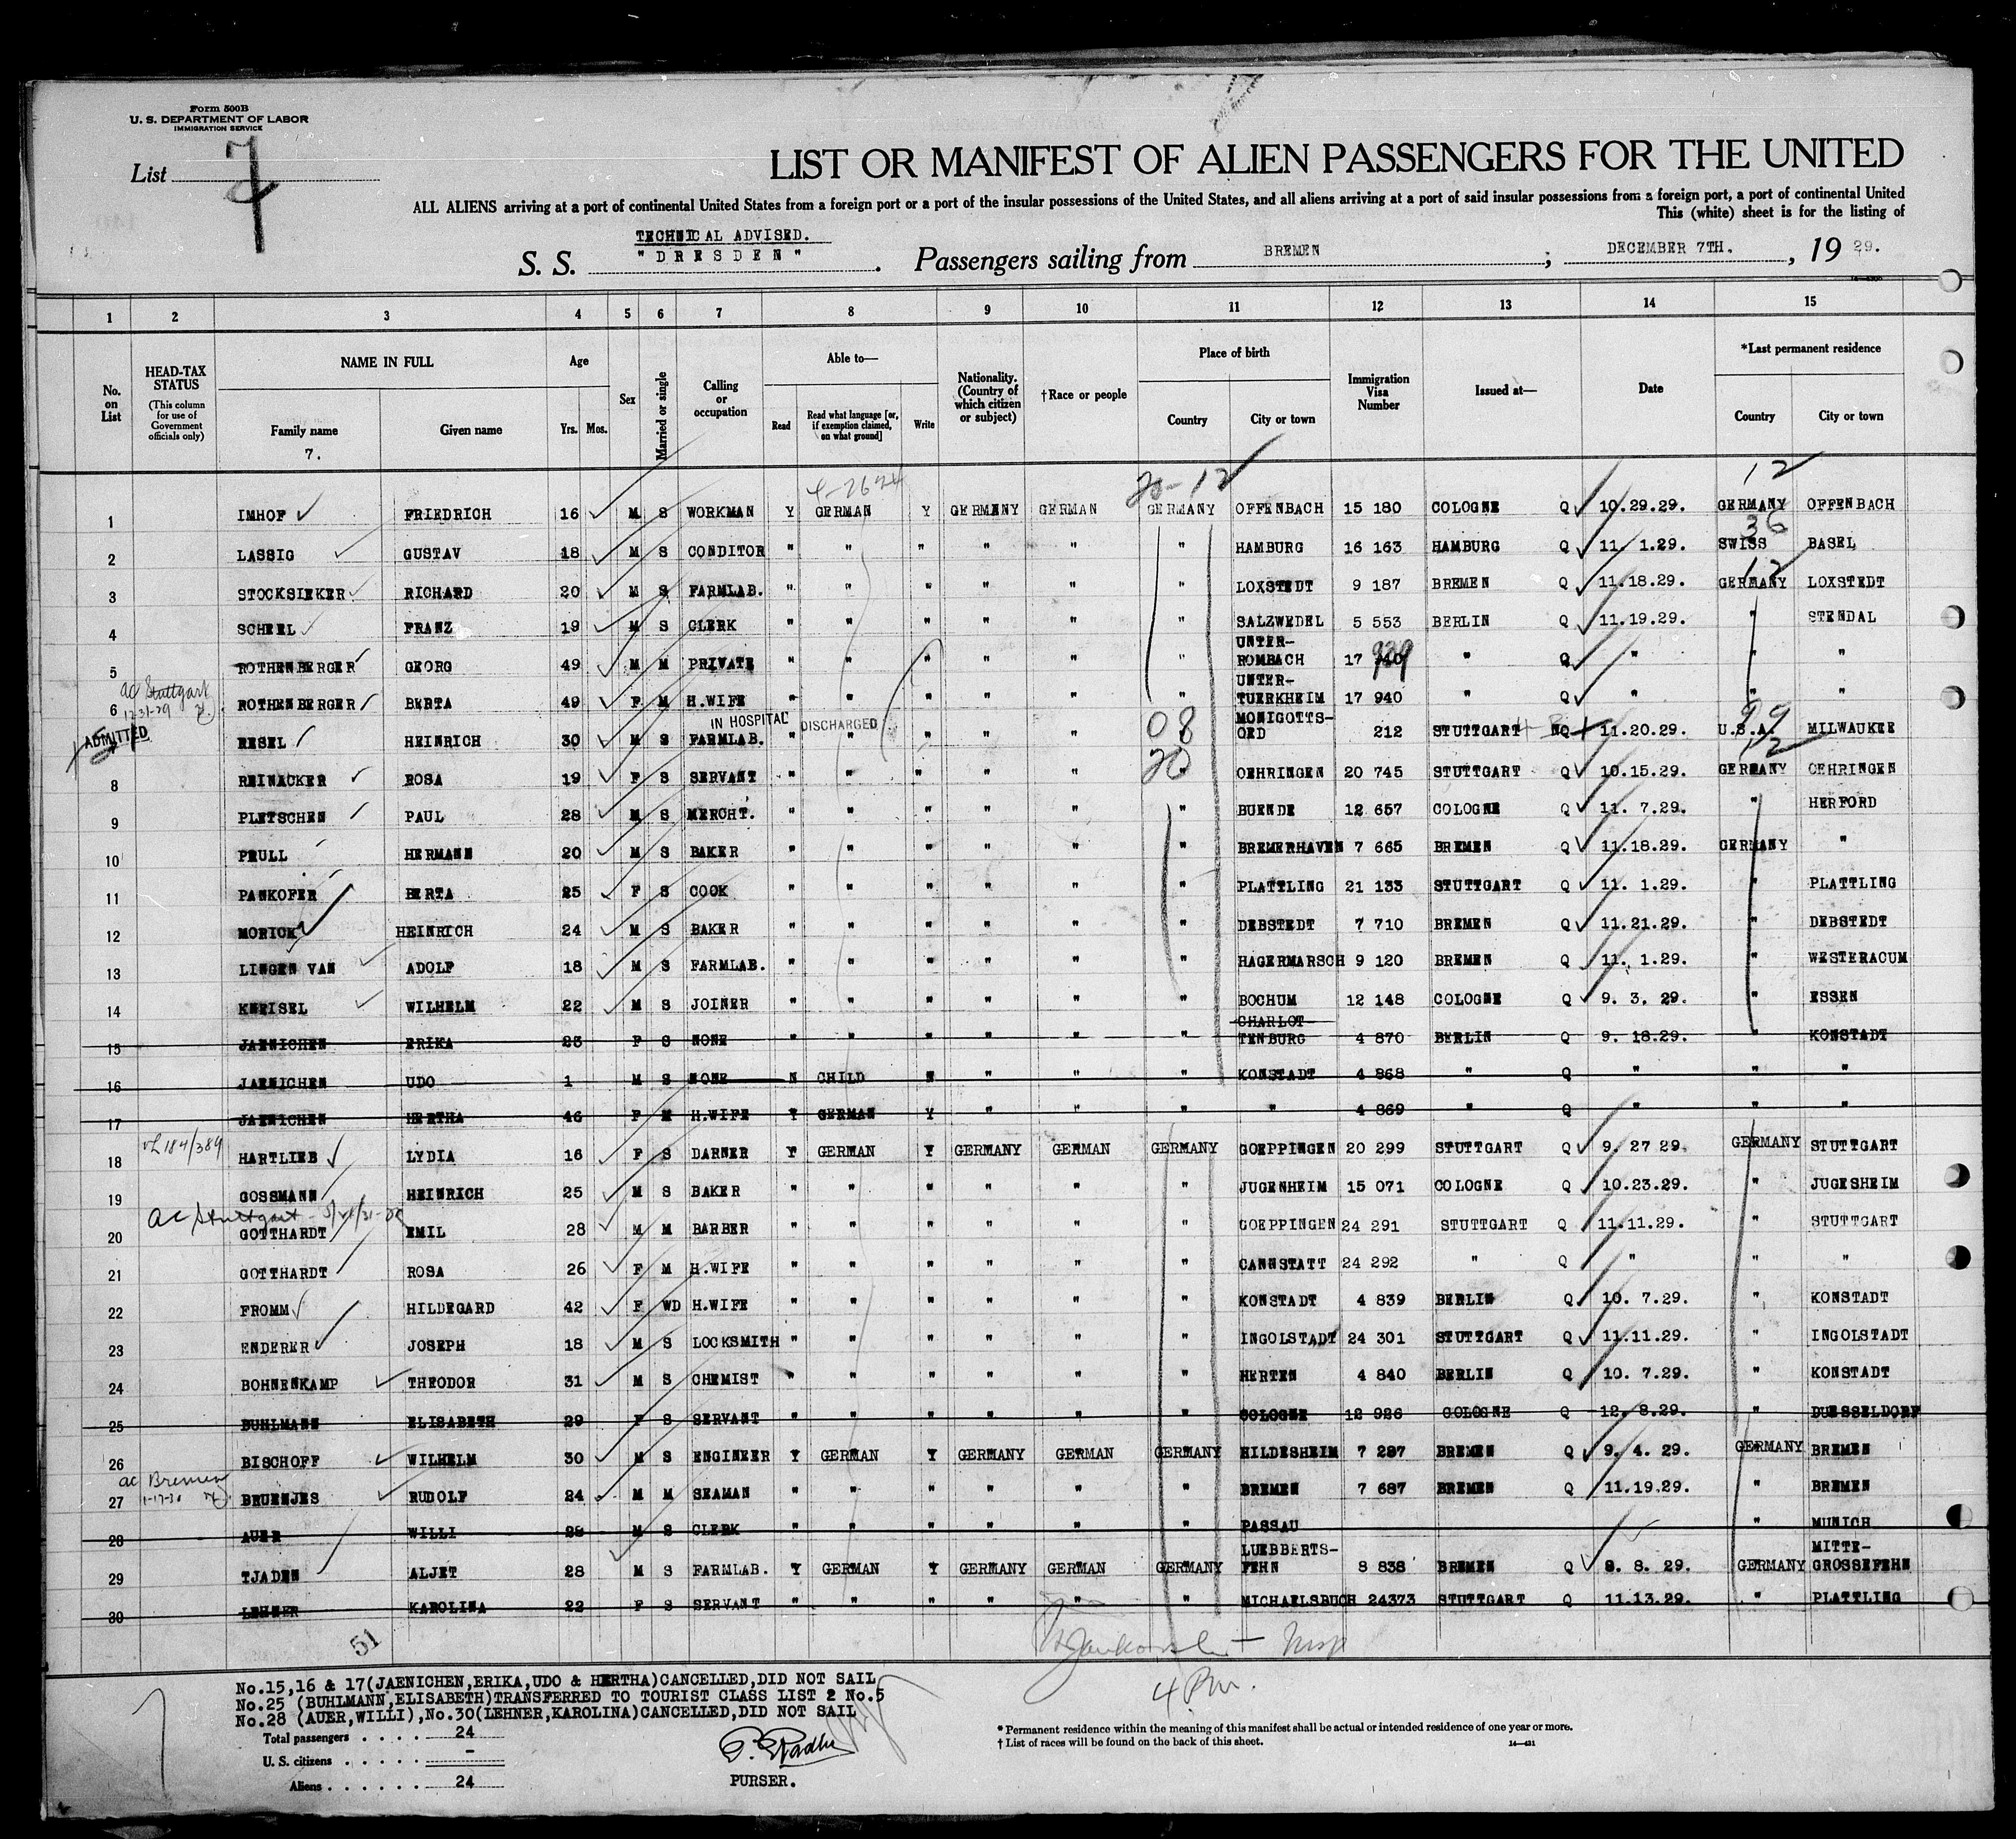 Form 500B
U. S. DEPARTMENT OF LABOR
IMMIGRATION SERVICE
List 7
LIST OR MANIFEST OF ALIEN PASSENGERS FOR THE UNITED
ALL ALIENS arriving at a port of continental United States from a foreign port or a port of the insular possessions of the United States, and all aliens arriving at a port of said insular possessions from a foreign port, a port of continental United
This (white) sheet is for the listing of
TECHNICAL ADVISED.
S. S. "DRESDEN". Passengers sailing from BREMEN ; DECEMBER 7TH. , 19 29.
1 2 3 4 5 6 7 8 9 10 11 12 13 14 15
No. on List
HEAD-TAX STATUS (This column for use of Government officials only)
NAME IN FULL
Family name
Given name
7.
Age
Yrs. Mos.
Sex
Married or single
Calling or occupation
Able to—
Read
Read what language [or, if exemption claimed, on what ground]
Write
Nationality. (Country of which citizen or subject)
†Race or people
Place of birth
Country
City or town
Immigration Visa Number
Issued at—
Date
*Last permanent residence
Country
City or town
20-12 12
1 IMHOF FRIEDRICH 16 M S WORKMAN Y GERMAN Y GERMANY GERMAN GERMANY OFFENBACH 15 180 COLOGNE Q 10.29.29. GERMANY OFFENBACH
36
2 LASSIG GUSTAV 18 M S CONDITOR " " " " " " HAMBURG 16 163 HAMBURG Q 11. 1.29. SWISS BASEL
12
3 STOCKSIEKER RICHARD 20 M S FARMLAB. " " " " " " LOXSTEDT 9 187 BREMEN Q 11.18.29. GERMANY LOXSTEDT
4 SCHEEL FRANZ 19 M S CLERK " " " " " " SALZWEDEL 5 553 BERLIN Q 11.19.29. " STENDAL
5 ROTHENBERGER GEORG 49 M M PRIVATE " " " " " " UNTER-ROMBACH 17 939 " Q " " "
ac Stuttgart
12-31-29
6 ROTHENBERGER BERTA 49 F M H.WIFE " " " " " " UNTER-TUERKHEIM 17 940 " Q " " "
IN HOSPITAL DISCHARGED
ADMITTED
08 99
RESEL HEINRICH 30 M S FARMLAB. " " " " " MONIGOTTS-ORD 212 STUTTGART NQ 11.20.29. U.S.A. MILWAUKEE
20 12
8 REINACKER ROSA 19 F S SERVANT " " " " " " OEHRINGEN 20 745 STUTTGART Q 10.15.29. GERMANY OEHRINGEN
9 PLETSCHEN PAUL 28 M S MERCHT. " " " " " " BUENDE 12 657 COLOGNE Q 11. 7.29. " HERFORD
10 PRULL HERMANN 20 M S BAKER " " " " " " BREMERHAVEN 7 665 BREMEN Q 11.18.29. GERMANY "
11 PANKOFER BERTA 25 F S COOK " " " " " " PLATTLING 21 133 STUTTGART Q 11. 1.29. " PLATTLING
12 MORICK HEINRICH 24 M S BAKER " " " " " " DEBSTEDT 7 710 BREMEN Q 11.21.29. " DEBSTEDT
13 LINGEN VAN ADOLF 18 M S FARMLAB. " " " " " " HAGERMARSCH 9 120 BREMEN Q 11. 1.29. " WESTERACUM
14 KNEISEL WILHELM 22 M S JOINER " " " " " " BOCHUM 12 148 COLOGNE Q 9. 3. 29. " ESSEN
15 JAENICHEN ERIKA 23 F S NONE " " " " " " CHARLOT-TENBURG 4 870 BERLIN Q 9. 18.29. " KONSTADT
16 JAENICHEN UDO 1 M S NONE N CHILD N " " " KONSTADT 4 868 " Q " " "
17 JAENICHEN HERTHA 46 F M H.WIFE Y GERMAN Y " " " " 4 869 " Q " " "
184/389
18 HARTLIEB LYDIA 16 F S DARNER Y GERMAN Y GERMANY GERMAN GERMANY GOEPPINGEN 20 299 STUTTGART Q 9. 27 29. GERMANY STUTTGART
19 GOSSMANN HEINRICH 25 M S BAKER " " " " " " JUGENHEIM 15 071 COLOGNE Q 10.23.29. " JUGESHEIM
ac Stuttgart
20 GOTTHARDT EMIL 28 M M BARBER " " " " " " GOEPPINGEN 24 291 STUTTGART Q 11.11.29. " STUTTGART
21 GOTTHARDT ROSA 26 F M H.WIFE " " " " " " CANNSTATT 24 292 " Q " " "
22 FROMM HILDEGARD 42 F WD H.WIFE " " " " " " KONSTADT 4 839 BERLIN Q 10. 7.29. " KONSTADT
23 ENDERER JOSEPH 18 M S LOCKSMITH " " " " " " INGOLSTADT 24 301 STUTTGART Q 11.11.29. " INGOLSTADT
24 BOHNENKAMP THEODOR 31 M S CHEMIST " " " " " " HERTEN 4 840 BERLIN Q 10. 7.29. " KONSTADT
25 BUHLMANN ELISABETH 29 F S SERVANT " " " " " " COLOGNE 12 926 COLOGNE Q 12. 8.29. " DUESSELDORF
26 BISCHOFF WILHELM 30 M S ENGINEER Y GERMAN Y GERMANY GERMAN GERMANY HILDESHEIM 7 287 BREMEN Q 9. 4. 29. GERMANY BREMEN
ac Bremen
1-17-30
27 BRUENJES RUDOLF 24 M M SEAMAN " " " " " " BREMEN 7 687 BREMEN Q 11.19.29. " BREMEN
28 AUER WILLI 28 M S CLERK " " " " " " PASSAU " MUNICH
29 TJADEN ALJET 28 M S FARMLAB. Y GERMAN Y GERMANY GERMAN GERMANY LUEBBERTS-FEHN 8 838 BREMEN Q 8. 8. 29. GERMANY MITTE-GROSSEFEHN
30 LEHNER KAROLINA 22 F S SERVANT " " " " " " MICHAELSBUCH 24373 STUTTGART Q 11.13.29. " PLATTLING
51
4 PM.
No.15,16 & 17(JAENICHEN,ERIKA,UDO & HERTHA)CANCELLED,DID NOT SAIL
No.25 (BUHLMANN,ELISABETH)TRANSFERRED TO TOURIST CLASS LIST 2 No.5
No.28 (AUER,WILLI),No.30(LEHNER,KAROLINA)CANCELLED,DID NOT SAIL
Total passengers . . . . 24
U. S. citizens . . . . . –
Aliens . . . . . . 24
PURSER.
* Permanent residence within the meaning of this manifest shall be actual or intended residence of one year or more.
† List of races will be found on the back of this sheet.
14—421